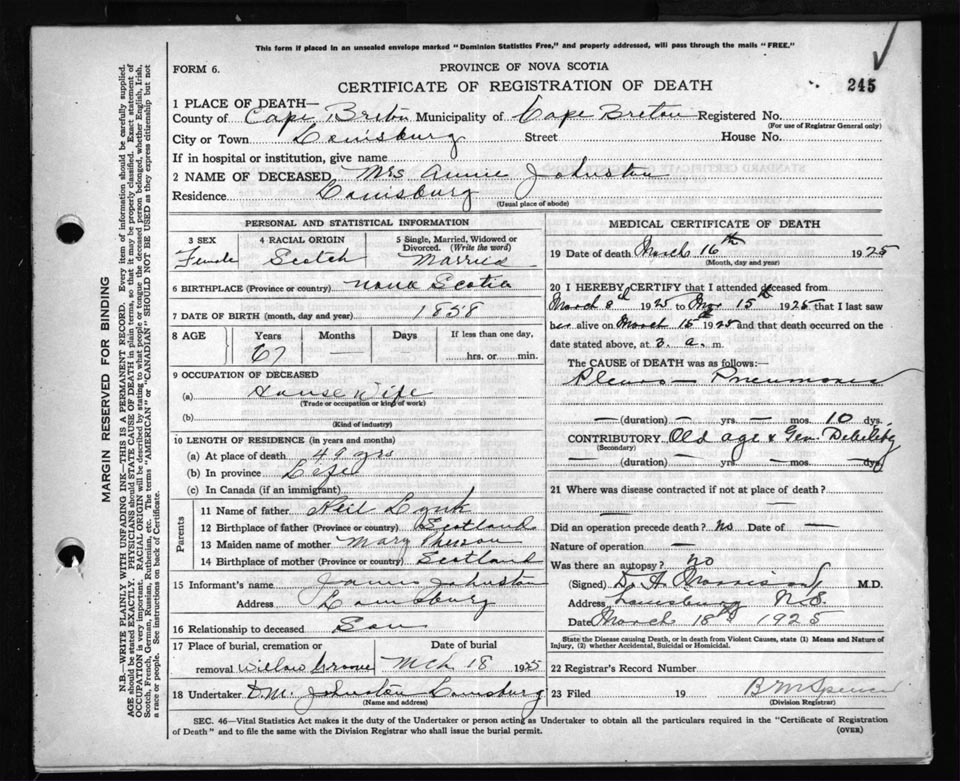 This form if placed in an unsealed envelope marked "Dominion Statistics Free," and properly addressed, will pass through the mails "FREE."
FORM 6.
PROVINCE OF NOVA SCOTIA
CERTIFICATE OF REGISTRATION OF DEATH
245
1 PLACE OF DEATH—
County of Cape Breton Municipality of Cape Breton Registered No.
(For use of Registrar General only)
City or Town Louisburg Street House No.
If in hospital or institution, give name
2 NAME OF DECEASED, Mrs Annie Johnston
Residence Louisburg
(Usual place of abode)
PERSONAL AND STATISTICAL INFORMATION
3 SEX
Female
4 RACIAL ORIGIN
Scotch
5 Single, Married, Widowed or Divorced. (Write the word)
Married
6 BIRTHPLACE (Province or country) Nova Scotia
7 DATE OF BIRTH (month, day and year) 1858
8 AGE Years Months Days If less than one day,
67 — hrs. or min.
9 OCCUPATION OF DECEASED
(a) House Wife
(Trade or occupation or kind of work)
(b)
(Kind of industry)
10 LENGTH OF RESIDENCE (in years and months)
(a) At place of death 49 yrs
(b) In province Life
(c) In Canada (if an immigrant)
Parents
11 Name of father Neil Lynk
12 Birthplace of father (Province or country) Scotland
13 Maiden name of mother Mary
14 Birthplace of mother (Province or country) Scotland
15 Informant's name James Johnston
Address Louisburg
16 Relationship to deceased Son
17 Place of burial, cremation or removal Willow Grove
Date of burial
Mch 18 1925
18 Undertaker D.M. Johnston Louisburg
(Name and address)
MEDICAL CERTIFICATE OF DEATH
19 Date of death March 16th 1925
(Month, day and year)
20 I HEREBY CERTIFY that I attended deceased from
March 8d 1925 to Mar 15th 1925 that I last saw
her alive on March 15th 1925 and that death occurred on the
date stated above, at 3. a. m.
The CAUSE of DEATH was as follows:
Pleuro-Pneumonia
— (duration) — yrs. — mos. 10 dys.
CONTRIBUTORY Old age & Gen. Debility
(Secondary)
— (duration) — yrs. — mos. — dys
21 Where was disease contracted if not at place of death?
—
Did an operation precede death? No Date of —
Nature of operation —
Was there an autopsy? no
(Signed) D. A. Morrison M.D.
Address Louisburg N.S.
Date March 18th 1925
State the Disease causing Death, or in death from Violent Causes, state (1) Means and Nature of
Injury, (2) whether Accidental, Suicidal or Homicidal.
22 Registrar's Record Number
23 Filed 19 B M Spencer
(Division Registrar)
SEC. 46—Vital Statistics Act makes it the duty of the Undertaker or person acting as Undertaker to obtain all the particulars required in the "Certificate of Registration
of Death" and to file the same with the Division Registrar who shall issue the burial permit.
(OVER)
MARGIN RESERVED FOR BINDING
N.B.—WRITE PLAINLY WITH UNFADING INK—THIS IS A PERMANENT RECORD. Every item of information should be carefully supplied.
AGE should be stated EXACTLY. PHYSICIANS should STATE CAUSE OF DEATH in plain terms, so that it may be properly classified. Exact statement of
OCCUPATION is very important. RACIAL ORIGIN will be described by stating to what people or tongue the deceased person belonged, whether English, Irish,
Scotch, French, German, Russian, Ruthenian, etc. The terms "AMERICAN" or "CANADIAN" SHOULD NOT BE USED as they express citizenship but not
a race or people. See instructions on back of Certificate.